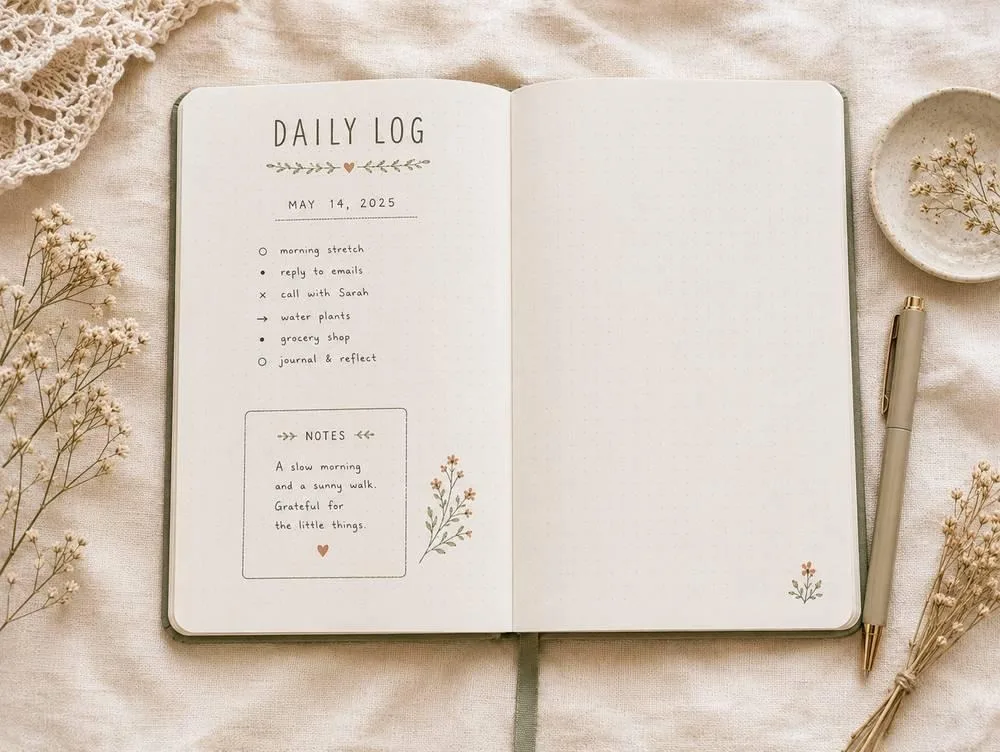 DAILY LOG
MAY 14, 2025
○ morning stretch
• reply to emails
× call with Sarah
→ water plants
• grocery shop
○ journal & reflect
NOTES
A slow morning
and a sunny walk.
Grateful for
the little things.